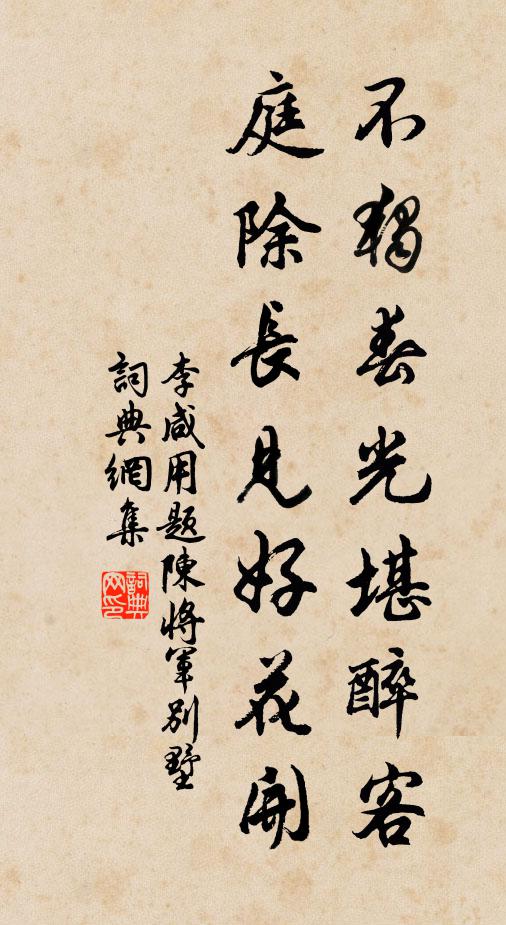 不獨春光堪醉客
庭除長見好花開
李咸用題陳將軍別墅
詞典網集
詞典
网印